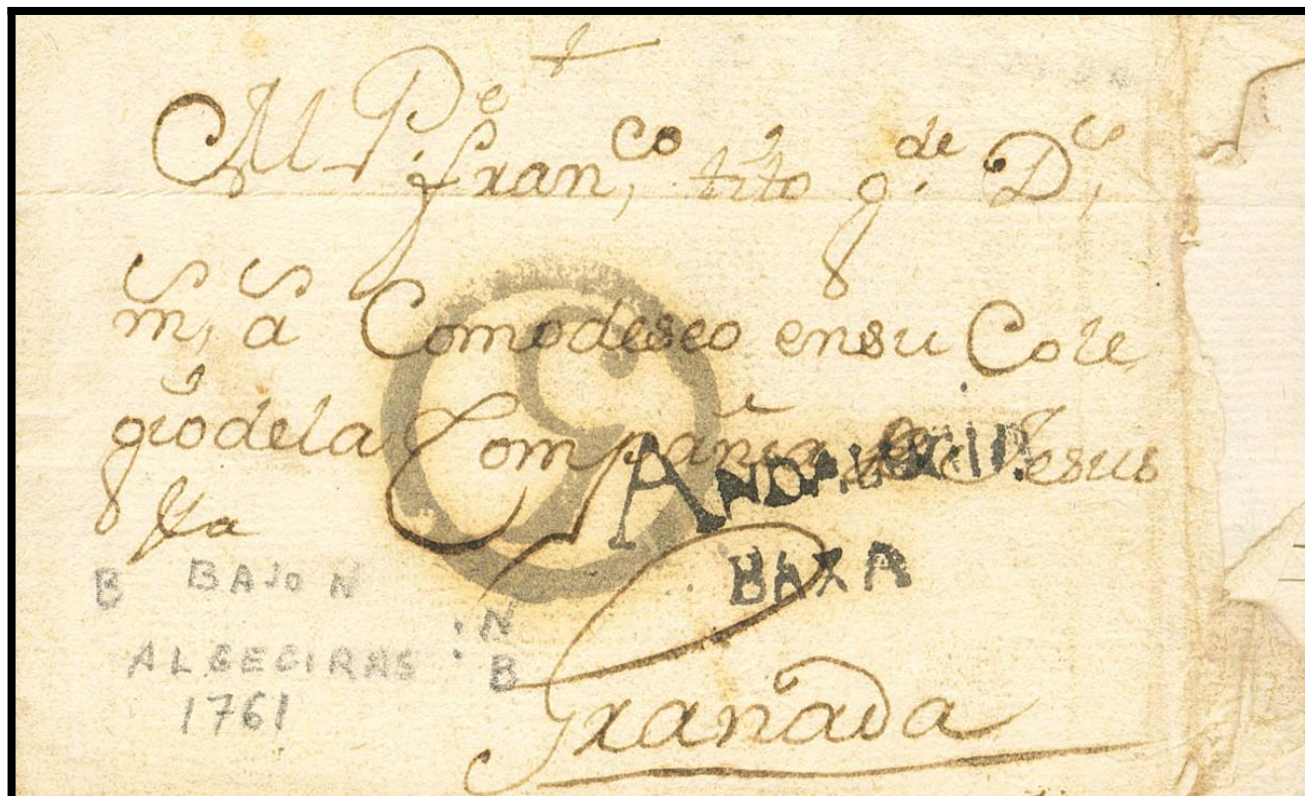 Al Pe
franco, tito g.de Dc,
m, a Como deseo en su Cole
gio de la Compañia de Jesus
5
ANDALUCIA
BAXA
B BAJO N
N
ALGECIRAS B
1761
Granada